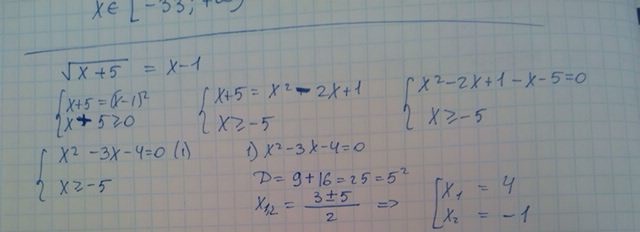 x ∈ [-33; +∞)
√x+5 = x-1
{ x+5 = (x-1)² x+5≥0
{ x+5 = x² - 2x+1 x≥-5
{ x²-2x+1-x-5=0 x≥-5
{ x²-3x-4=0 (1) x≥-5
1) x²-3x-4=0
D = 9+16=25=5²
x1/2 = 3±5 / 2 => [ x₁ = 4 x₂ = -1